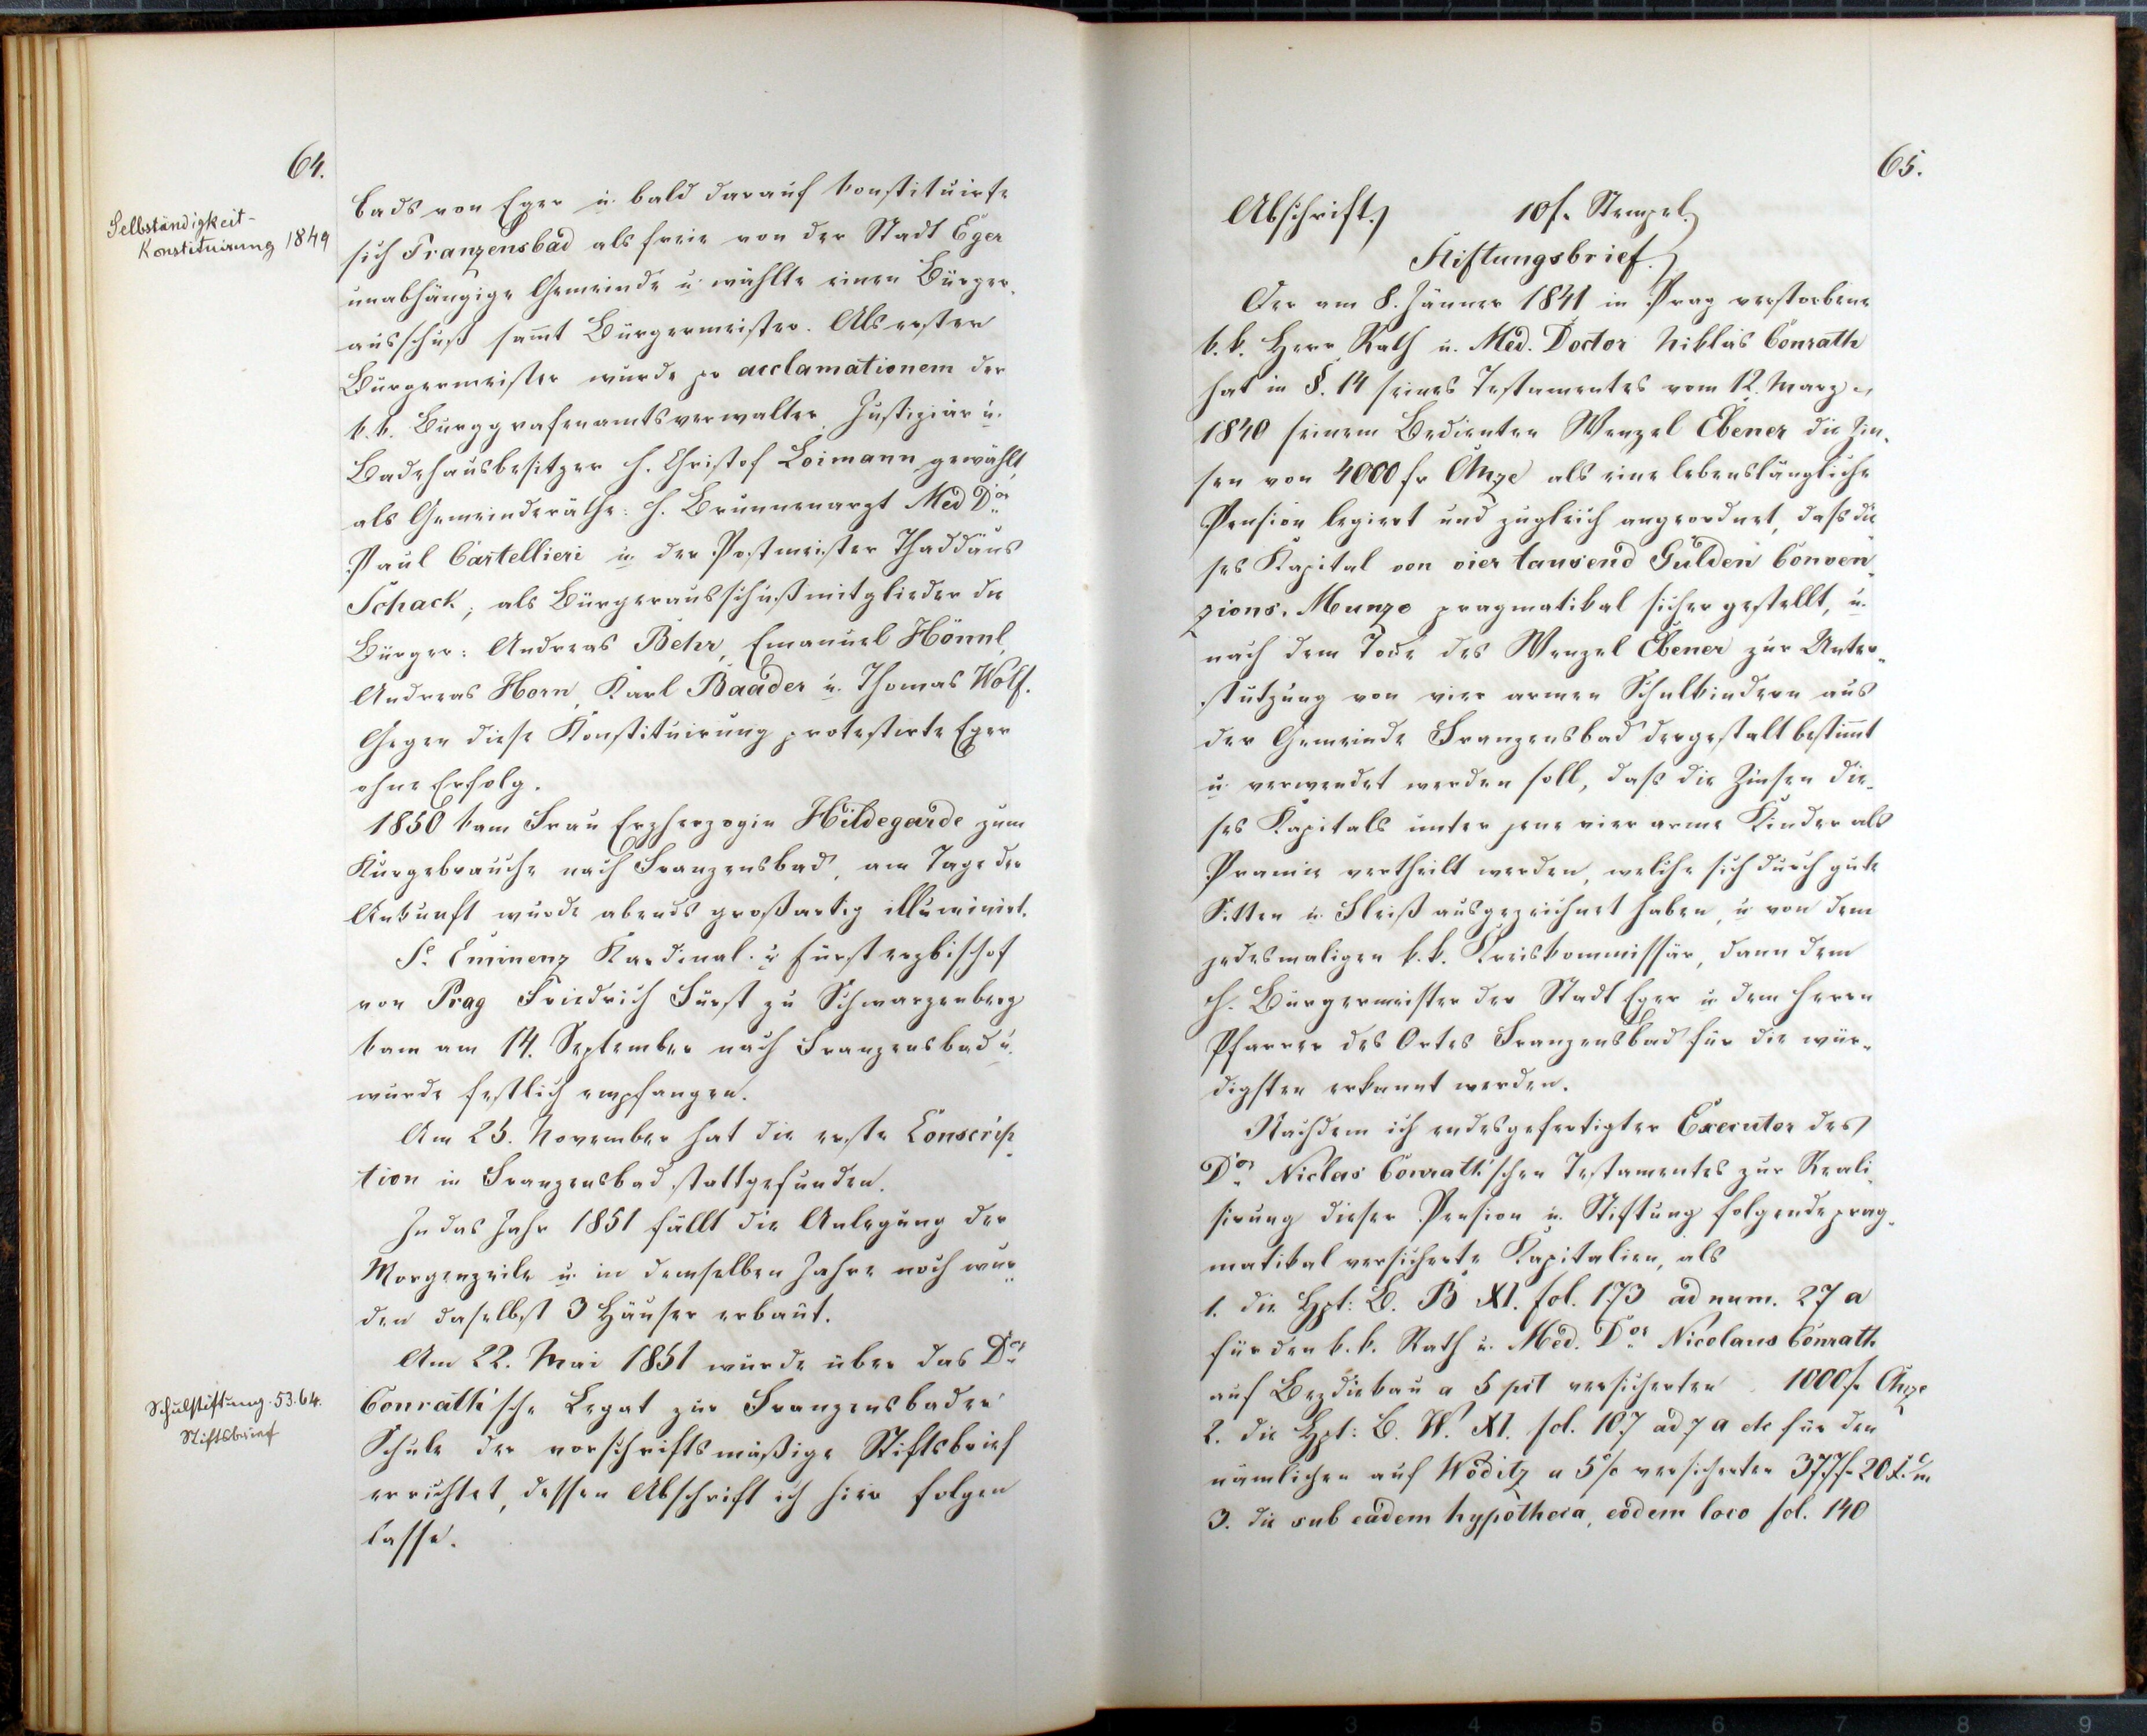 64.
Selbständigkeit-
Konstituirung 1849
bads von Eger u. bald darauf konstituirte
sich Franzensbad als freie von der Stadt Eger
unabhängige Gemeinde u. wählte einen Bürger-
ausschuß samt Bürgermeister. Als erster
Bürgermeister wurde pr acclamationem der
k. k. Burggrafenamtsverwalter, Justiziär u.
Badehausbesitzer H. Christof Loimann gewählt,
als Gemeinderäthe: H. Brunnenarzt Med Dor
Paul Cartellieri u. der Postmeister Thaddäus
Schack; als Bürgerausschußmitglieder die
Bürger: Andreas Behr, Emanuel Hönnl,
Andreas Horn, Karl Baader u. Thomas Wolf.
Gegen diese Konstituirung protestirte Eger
ohne Erfolg.
1850 kam Frau Erzherzogin Hildegarde zum
Kurgebrauche nach Franzensbad, am Tage der
Ankunft wurde abends großartig illuminirt.
Se Eminenz Kardinal- u. Fürsterzbischof
von Prag Friedrich Fürst zu Schwarzenberg
kam am 14. September nach Franzensbad u.
wurde festlich empfangen.
Am 25. November hat die erste Conscrip-
tion in Franzensbad stattgefunden.
In das Jahr 1851 fällt die Anlegung der
Morgenzeile u. in demselben Jahre noch wur-
den daselbst 3 Häuser erbaut.
Am 22. Mai 1851 wurde über das Dor
Schulstiftung. 53. 64.
Stiftsbrief
Conrath'sche Legat zur Franzensbader
Schule der vorschriftsmäßige Stiftsbrief
errichtet, dessen Abschrift ich hier folgen
lasse.
65.
Abschrift. 10 f. Stempel.
Stiftungsbrief.
Der am 8. Jänner 1841 in Prag verstorbene
k. k. Herr Rath u. Med. Doctor Niklas Conrath
hat in §. 14 seines Testamentes vom 12. Marz
1840 seinem Bedienten Wenzel Ebener die Zin-
sen von 4000 fr CMze als eine lebenslängliche
Pension legiert und zugleich angeordnet, dass die
ses Kapital von vier tausend Gulden Conven-
zions-Munze pragmatikal sicher gestellt, u.
nach dem Tode des Wenzel Ebener zur Unter-
stutzung von vier armen Schulkindern aus
der Gemeinde Franzensbad dergestalt bestimt
u. verwendet werden soll, dass die Zinsen die-
ses Kapitals unter jene vier arme Kinder als
Pramie vertheilt werden, welche sich durch gute
Sitten u. Fleiß ausgezeichnet haben, u. von dem
jedesmaligen k. k. Kreiskommissär, dann dem
H. Bürgermeister der Stadt Eger u. dem Herrn
Pfarrer des Ortes Franzensbad für die wür-
digsten erkannt werden.
Nachdem ich endesgefertigter Executor des
Dor Niclas Conrath'schen Testamentes zur Reali-
sirung dieser Pension u. Stiftung folgende prag-
matikal versicherte Kapitalien, als
1. die Hpt: B. B XI. fol. 173 ad num. 27 a
für den k. k. Rath u. Med. Dor Nicolaus Conrath
auf Bezdiekau a 5 pct versicherten 1000 fr CMze
2. die Hpt: B. W. XI. fol. 107 ad 7 a etc für den
nämlichen auf Woditz a 5% versicherten 377 fr 20 x. Cm
3. die sub eadem hypotheca, eodem loco fol. 140